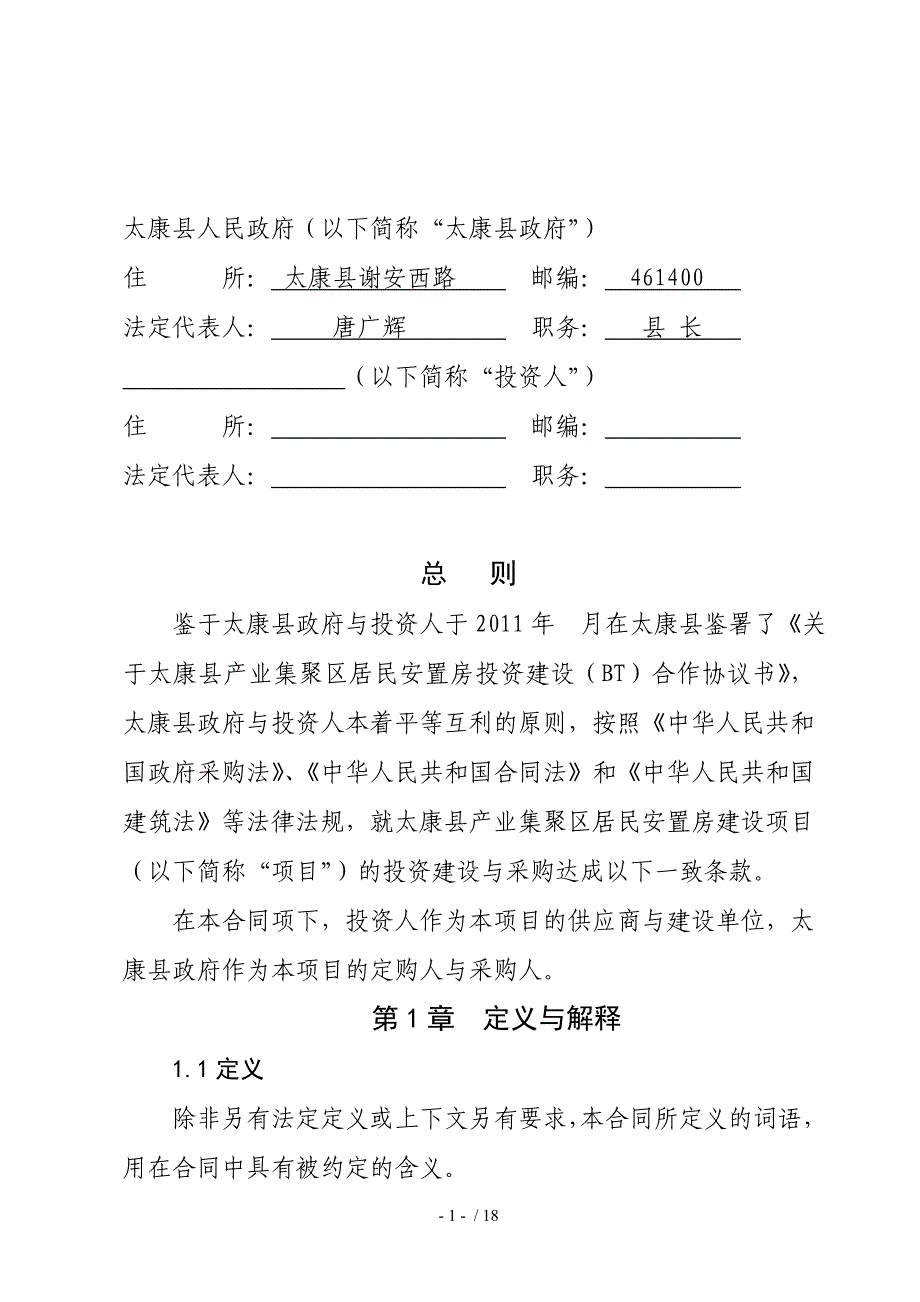 太康县人民政府（以下简称“太康县政府”）
住　　所：太康县谢安西路　邮编：461400
法定代表人：唐广辉　职务：县 长
（以下简称“投资人”）
住　　所：　邮编：
法定代表人：　职务：
总　则
鉴于太康县政府与投资人于2011年　月在太康县鉴署了《关
于太康县产业集聚区居民安置房投资建设（BT）合作协议书》，
太康县政府与投资人本着平等互利的原则，按照《中华人民共和
国政府采购法》、《中华人民共和国合同法》和《中华人民共和国
建筑法》等法律法规，就太康县产业集聚区居民安置房建设项目
（以下简称“项目”）的投资建设与采购达成以下一致条款。
在本合同项下，投资人作为本项目的供应商与建设单位，太
康县政府作为本项目的定购人与采购人。
第1章　定义与解释
1.1定义
除非另有法定定义或上下文另有要求，本合同所定义的词语，
用在合同中具有被约定的含义。
- 1 - / 18